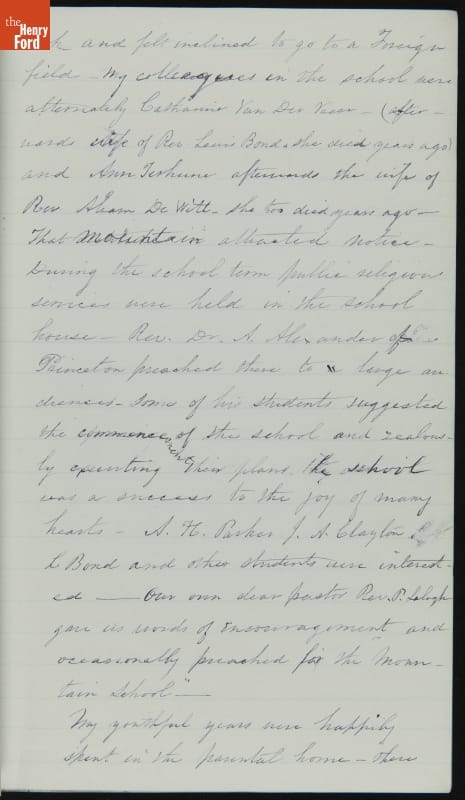 the
Henry
Ford
and felt inclined to go to a Foreign
field – My colleagues in the school were
alternately Catharine Van Der Veer – (after-
wards wife of Rev Lewis Bond & she died years ago)
and Ann Terhune afterwards the wife of
Rev Abram De Witt – she too died years ago –
That mountain attracted notice –
During the school term public religious
services were held in the school
house – Rev. Dr. A. Alexander of
Princeton preached there to a large au
diences – Some of his students suggested
the commencement of the school and zealous-
ly executing their plans the school
was a success to the joy of many
hearts – A. H. Parker J. A. Clayton
L Bond and other students were interest-
ed — Our own dear pastor Rev. P. Labagh
gave us words of encouragement and
occasionally preached for the "Moun-
tain School" —
My youthful years were happily
spent in the parental home – there